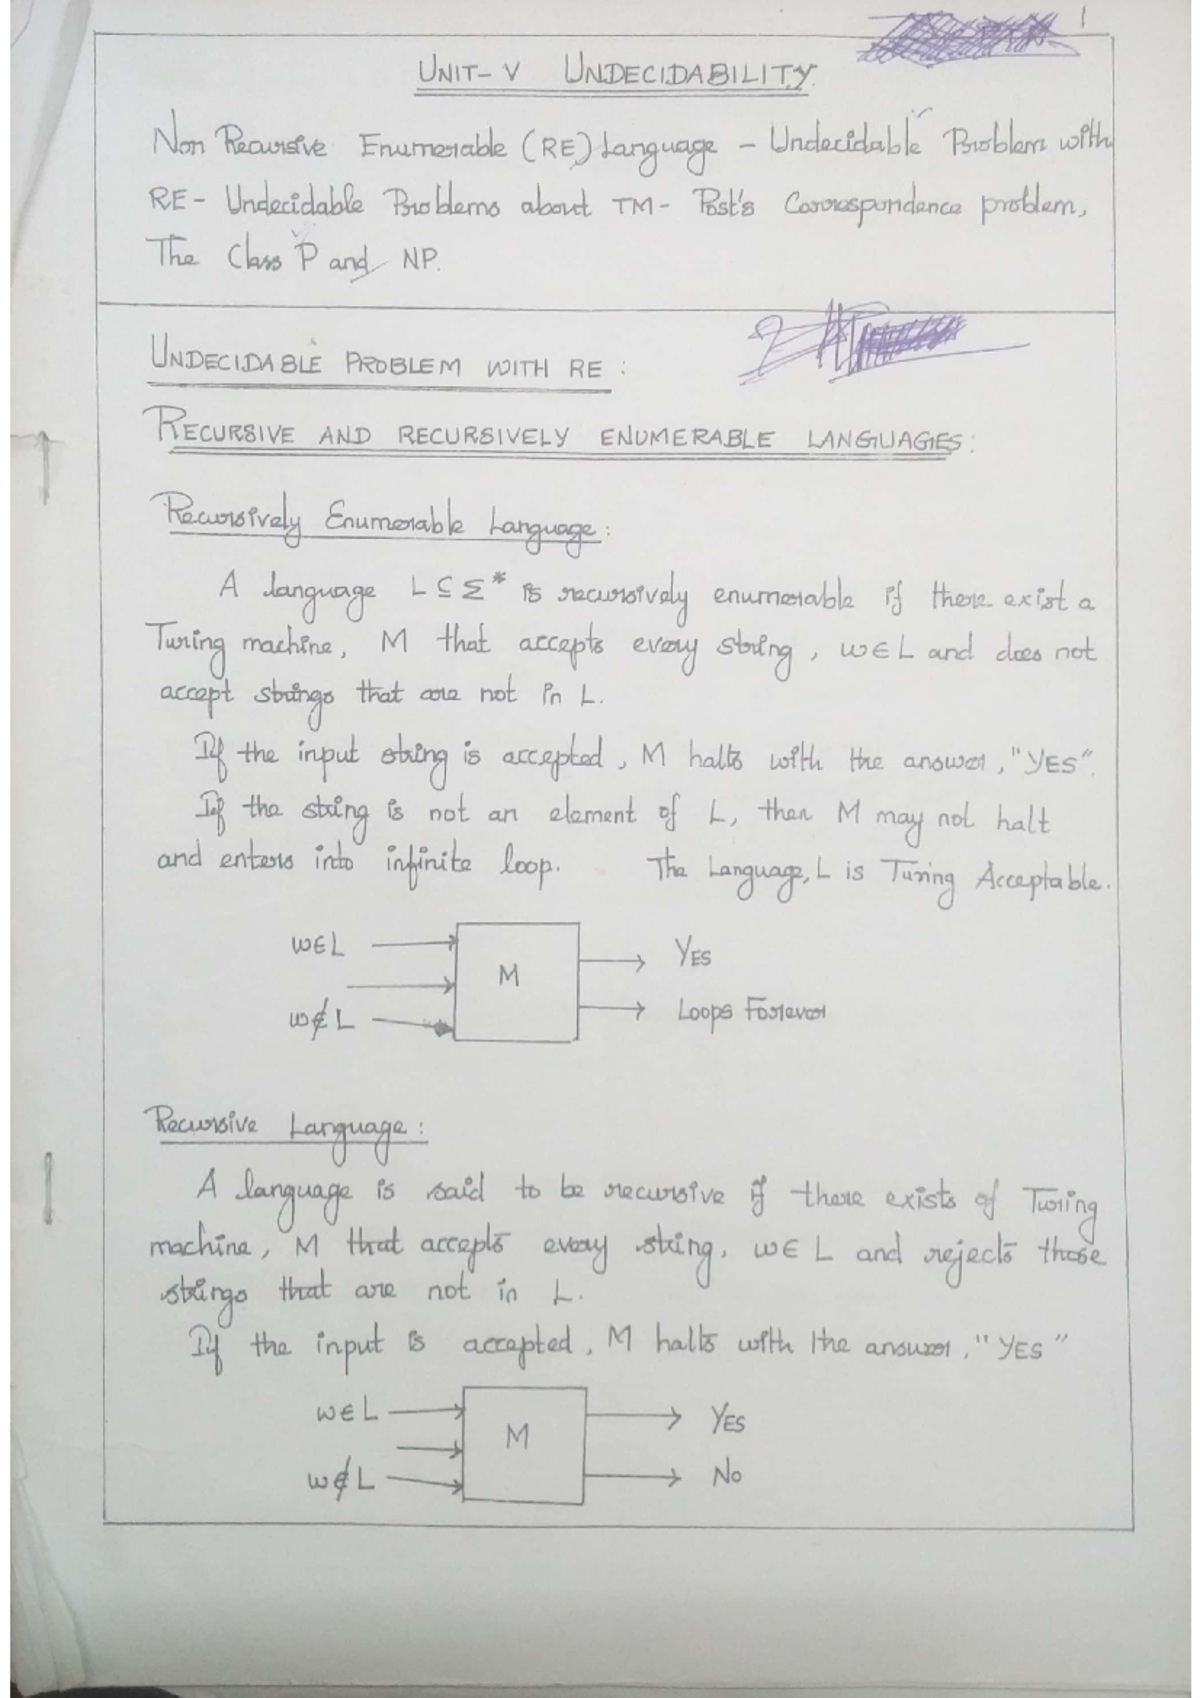 1
UNIT-V UNDECIDABILITY.
Non Recursive Enumerable (RE) Language - Undecidable Problem with
RE - Undecidable Problems about TM - Post's Correspondence problem,
The Class P and NP.
UNDECIDABLE PROBLEM WITH RE :
RECURSIVE AND RECURSIVELY ENUMERABLE LANGUAGES:
Recursively Enumerable Language:
A language L ⊆ Σ* is recursively enumerable if there exist a
Turing machine, M that accepts every string, w∈L and does not
accept strings that are not in L.
If the input string is accepted, M halts with the answer, "YES".
If the string is not an element of L, then M may not halt
and enters into infinite loop. The Language, L is Turing Acceptable.
w∈L
M
YES
w∉L
Loops Forever
Recursive Language:
A language is said to be recursive if there exists of Turing
machine, M that accepts every string, w∈L and rejects those
strings that are not in L.
If the input is accepted, M halts with the answer, "YES"
w∈L
M
YES
w∉L
No